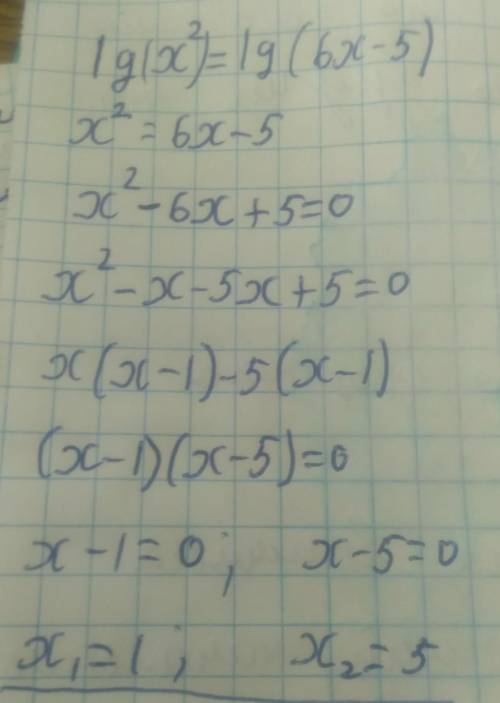 lg(x²)=lg(6x-5)
x²=6x-5
x²-6x+5=0
x²-x-5x+5=0
x(x-1)-5(x-1)
(x-1)(x-5)=0
x-1=0; x-5=0
x₁=1; x₂=5